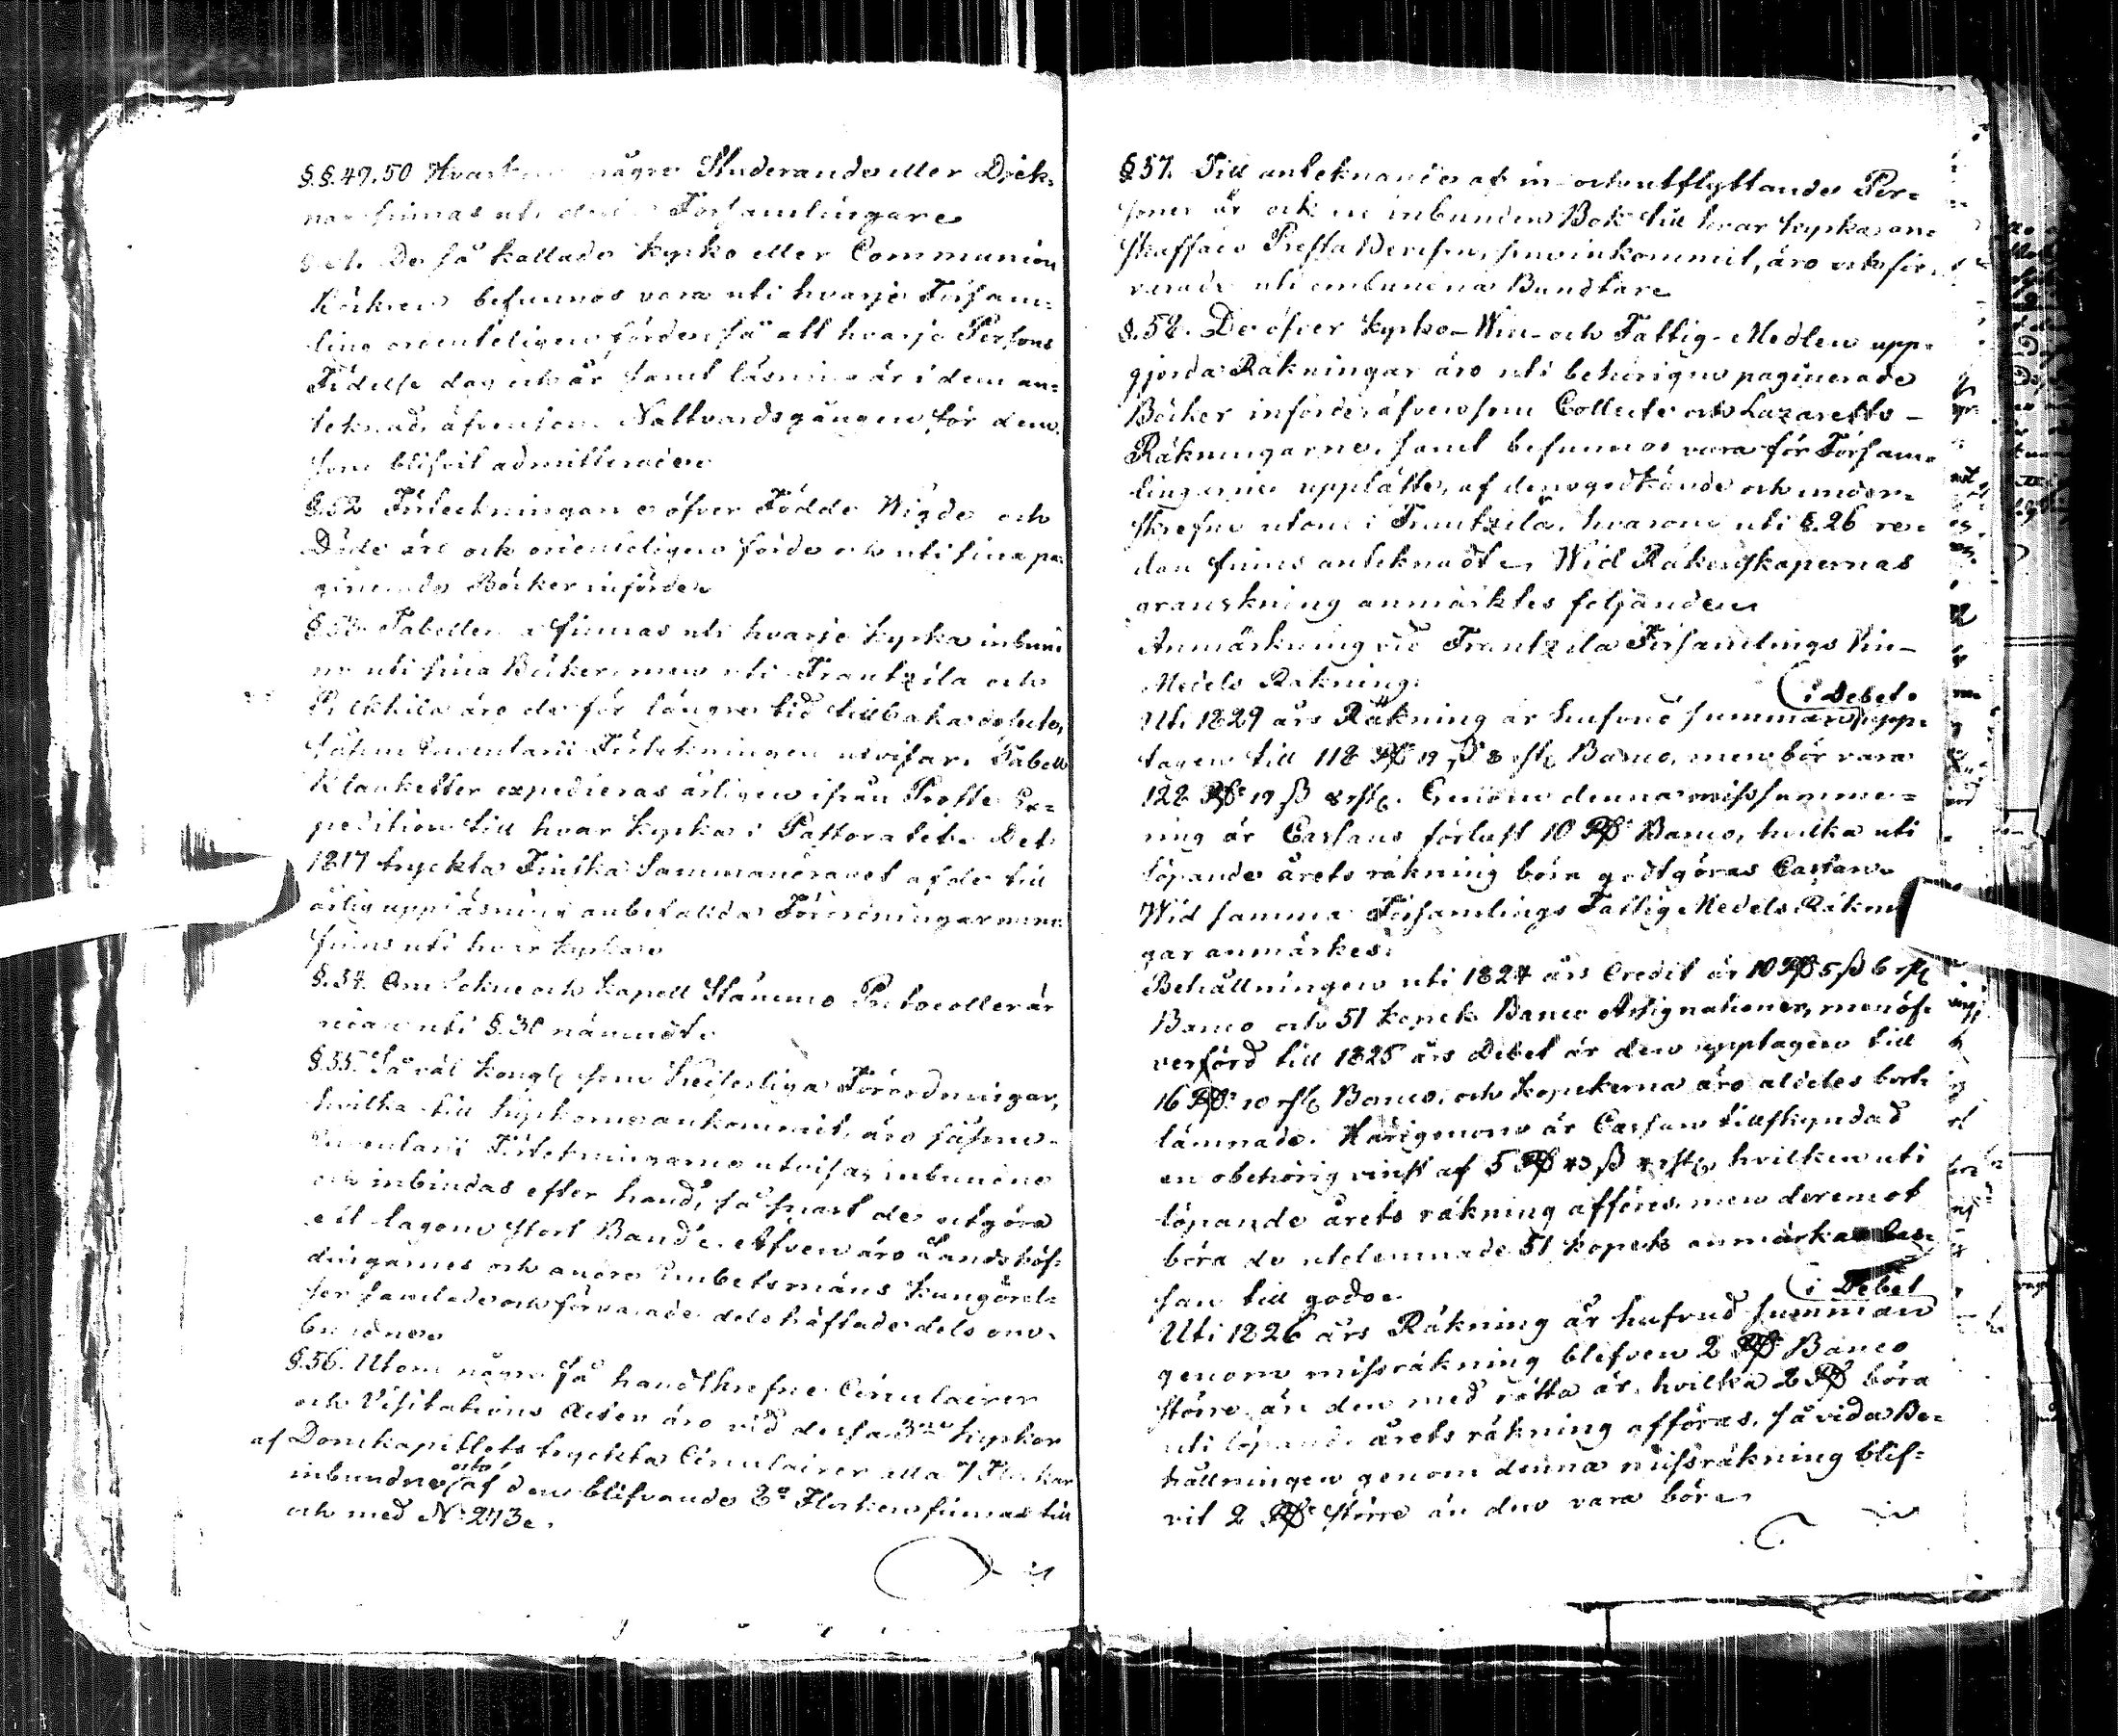 §.§. 49. 50 Hvarken några Studerande eller Dräk-
nar finnas uti dessa Församlingar.
§ 51. De så kallade Kyrko eller Communion
Böcker befunnos vara uti hvarje Försam-
ling ordenteligen förde, så att hvarje Persons
Födelse dag och år samt läsning är i dem an-
teknad, äfvensom Nattvardsgången för dem,
som blifvit admitterade.
§. 52 Förteckningarne öfver Födde Wigde och
Döde äro ock ordenteligen förde och uti sina pa-
ginerade Böcker införde.
§. 53. Tabellerna finnas uti hvarje Kyrka inbund-
ne uti sina Böcker, men uti Frantzila och
äro de för längre tid tillbaka defecte,
såsom Inventarii Förtekningen utvisar. Tabell
Blanketter expedieras årligen ifrån Prosts Ex-
pedition till hvar Kyrka i Pastoratet. Det
1817 tryckta Finska Sammandraget af de till
årlig uppläsning anbefallda Förordningar
finns uti hvar Kyrka.
§. 54. Om Sokne och Kapell Stämmo Protocoller är
redan uti §. 30 nämndt.
§. 55. Så väl Kongl. som Kejserliga Förordningar,
hvilka till Kyrkorne ankommit, äro såsom
Inventarii Förtekningarne utvisa, inbundne
och inbindas efter hand, så snart de utgöra
ett lagom stort Band. Äfven äro Landshöf-
dingarnes och andre Embetsmäns Kungörel-
ser samlade och förvarade dels häftade dels om-
bundne.
§. 56. Utom några få handskrefne Circulairer
och Visitations Acten äro vid dessa 3ne Kyrkor
af Domkapitlets tryckta Circulairer alla 7 Flockar
inbundne, och af den blifvande 8a Flocken finnas till
och med No 273.
§ 57. Till anteknande af in- och utflyttande Per-
soner är ock en inbunden Bok till hvar Kyrka an-
skaffad. Presta Bevisen, som inkommit, äro ock för-
varade uti ombundna Bundtar.
§. 58. De öfver Kyrko- Win- och Fattig- Medlen upp-
gjorda Räkningar äro uti behörigen paginerade
Böcker införde, äfvensom Collect- och Lazaretts-
Räkningarne, samt befunnos vara för Försam-
lingarne upplästa, af dem godkände och under-
skrefne utom i Frantzila, hvarom uti §. 26 re-
dan finns anteknadt. Wid Räkenskapernas
granskning anmärktes följande.
Anmärkning vid Frantzila Församlings Vin-
Medels Räkning.
Uti 1829 års Räkning är hufvud summan i Debet upp-
tagen till 118 Rd 19 ß 8 rst. Banco, men bör vara
128 Rd 19 ß 8 rst. Genom denna missumme-
ring är Cassans förlust 10 Rd Banco, hvilka uti
löpande årets räkning böra godtgöras Cassan.
Wid samma Församlings Fattig Medels Räknin-
gar anmärkes:
Behållningen uti 1824 års Credit är 10 Rd 5 ß 6 rst
Banco och 51 Kopek Banco Assignationer, men öf-
verförd till 1825 års Debet är den upptagen till
16 Rd 10 rst Banco, och kopekerna äro aldeles bort-
lämnade. Härigenom är Cassan tillskyndad
en obehörig vinst af 5 Rd 43 ß 4 rst, hvilken uti
löpande årets räkning afföres, men deremot
böra de utelemnade 51 kopek anmärkas Cas-
san till godo.
Uti 1826 års Räkning är hufvud summan i Debet
genom missräkning blefven 2 Rd Banco
större, än den med rätta är, hvilka 2 Rd böra
uti löpande årets räkning afföras, så vida Be-
hållningen genom denna missräkning blif-
vit 2 Rd större än den vara bör.